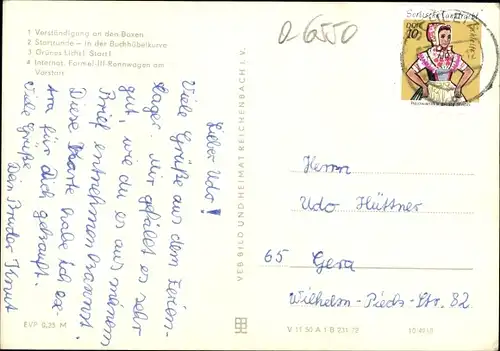 1 Verständigung an den Boxen
2 Startrunde – in der Buchhübelkurve
3 Grünes Licht! Start!
4 Internat. Formel-III-Rennwagen am
Vorstart
Lieber Udo!
Viele Grüße aus dem Ferien-
lager. Mir gefällt es sehr
gut, wie du es aus meinem
Brief entnehmen kannst.
Diese Karte habe ich ex-
tra für dich gekauft.
Viele Grüße
Dein Bruder Knut
EVP 0,25 M
VEB BILD UND HEIMAT REICHENBACH I. V.
Sorbische Tanztracht
DDR
10
Herrn
Udo Hüttner
65 Gera
Wilhelm-Pieck-Str. 82
V 11 50 A 1 B 231/72